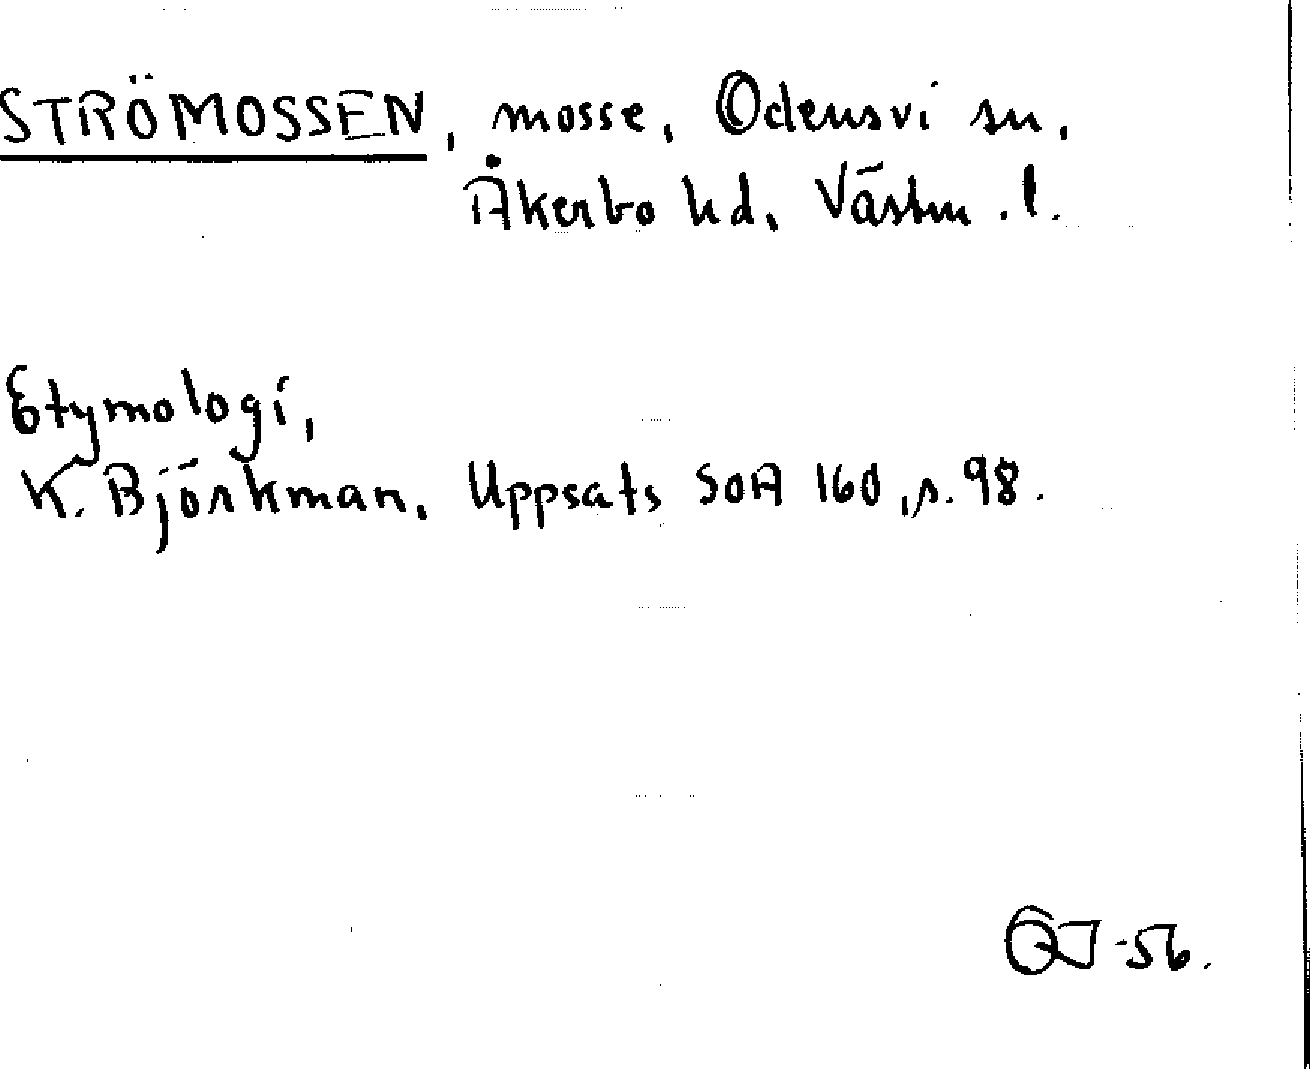 STRÖMOSSEN, mosse, Odensvi sn.
Åkerbo hd, Västm. l.
Etymologi,
K. Björkman, Uppsats SOA 160, s. 98.
-56.